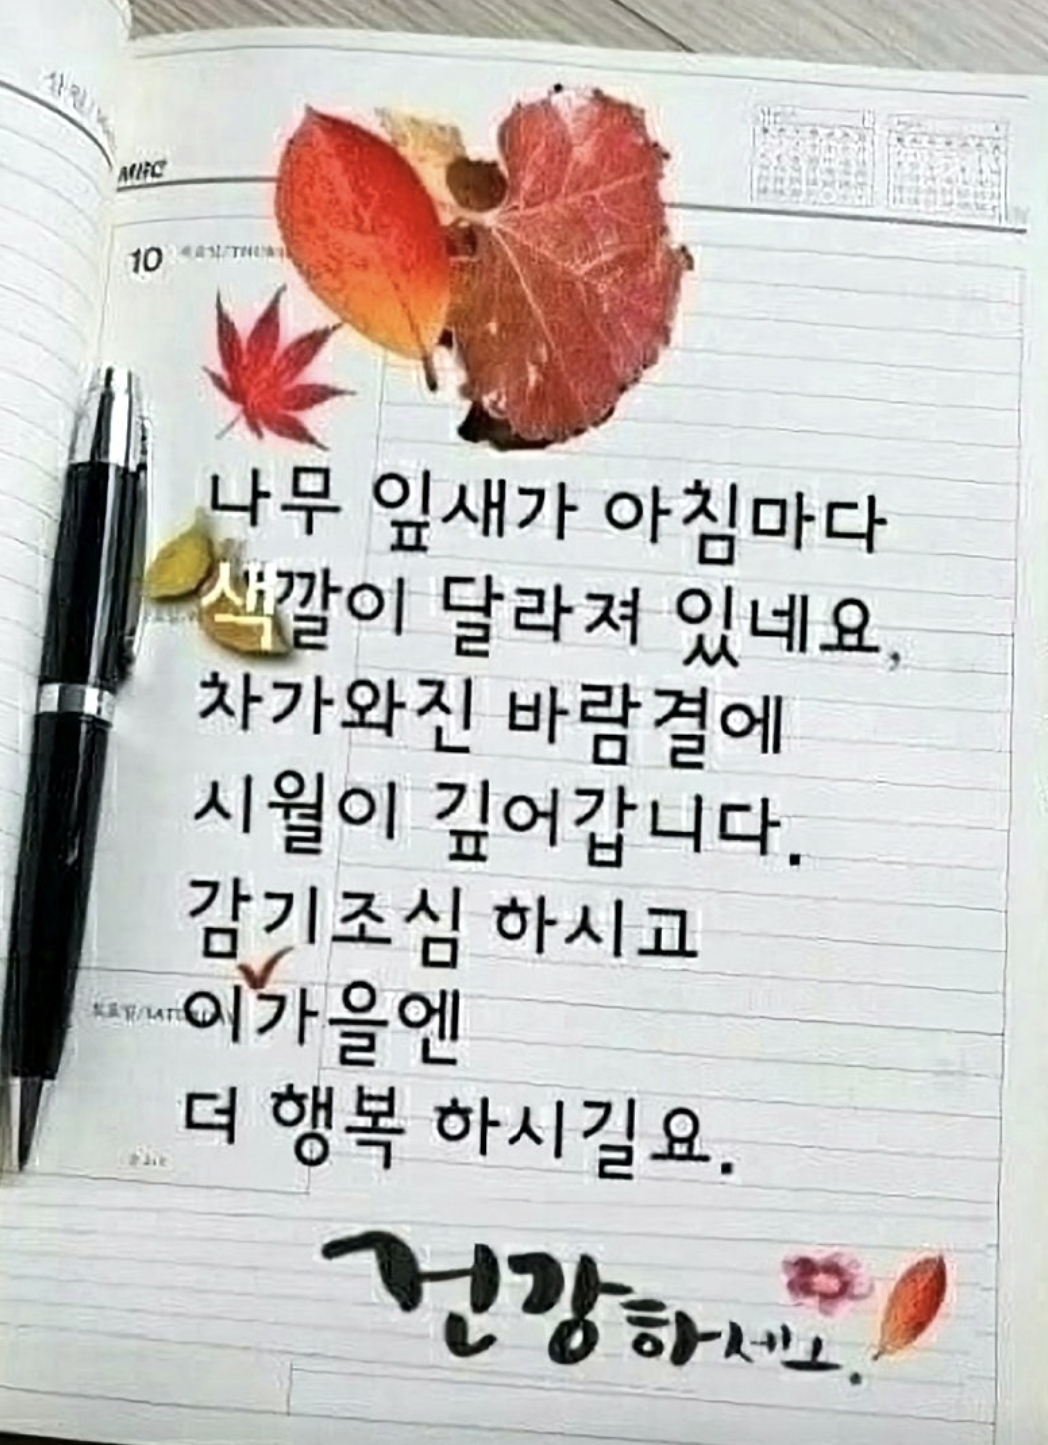 10
나무 잎새가 아침마다
색깔이 달라져 있네요,
차가와진 바람결에
시월이 깊어갑니다.
감기조심 하시고
이가을엔
더 행복 하시길요.
건강하세요.